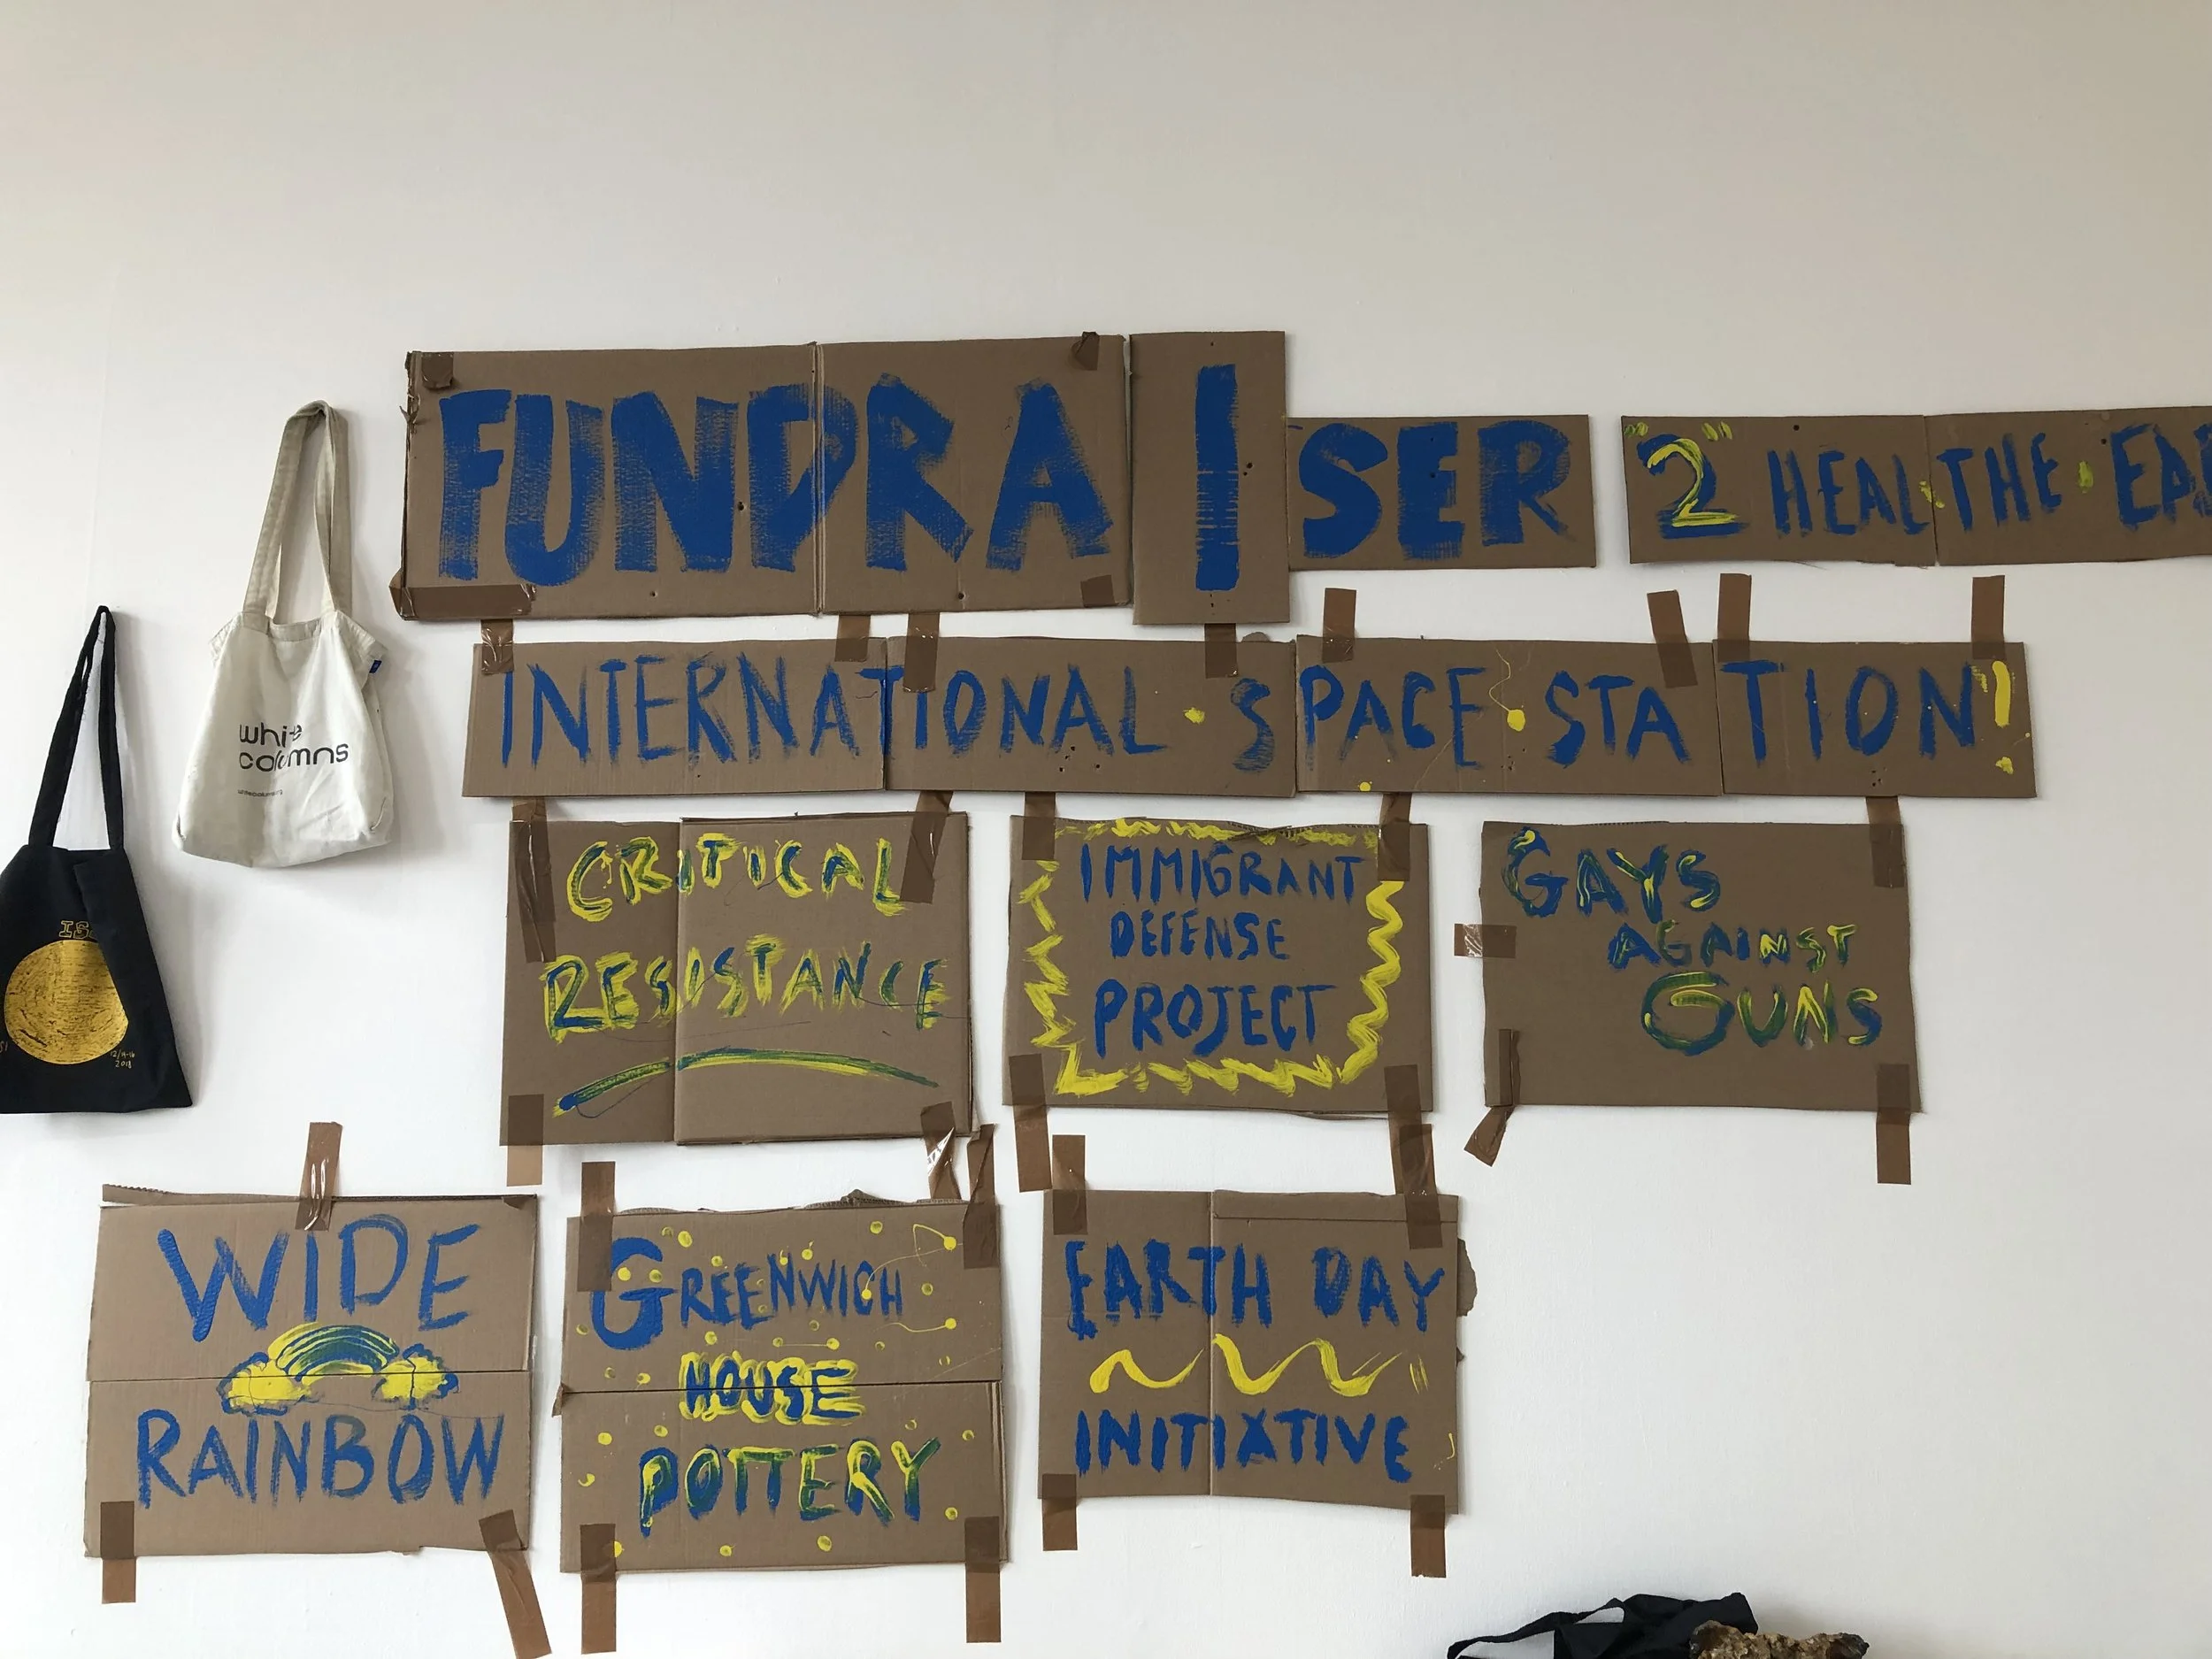 FUNDRAISER "2" HEAL THE EA
INTERNATIONAL · SPACE · STATION!
white
columns
CRITICAL
RESISTANCE
IMMIGRANT
DEFENSE
PROJECT
GAYS
AGAINST
GUNS
12/14-16
2018
WIDE
RAINBOW
GREENWICH
HOUSE
POTTERY
EARTH DAY
INITIATIVE